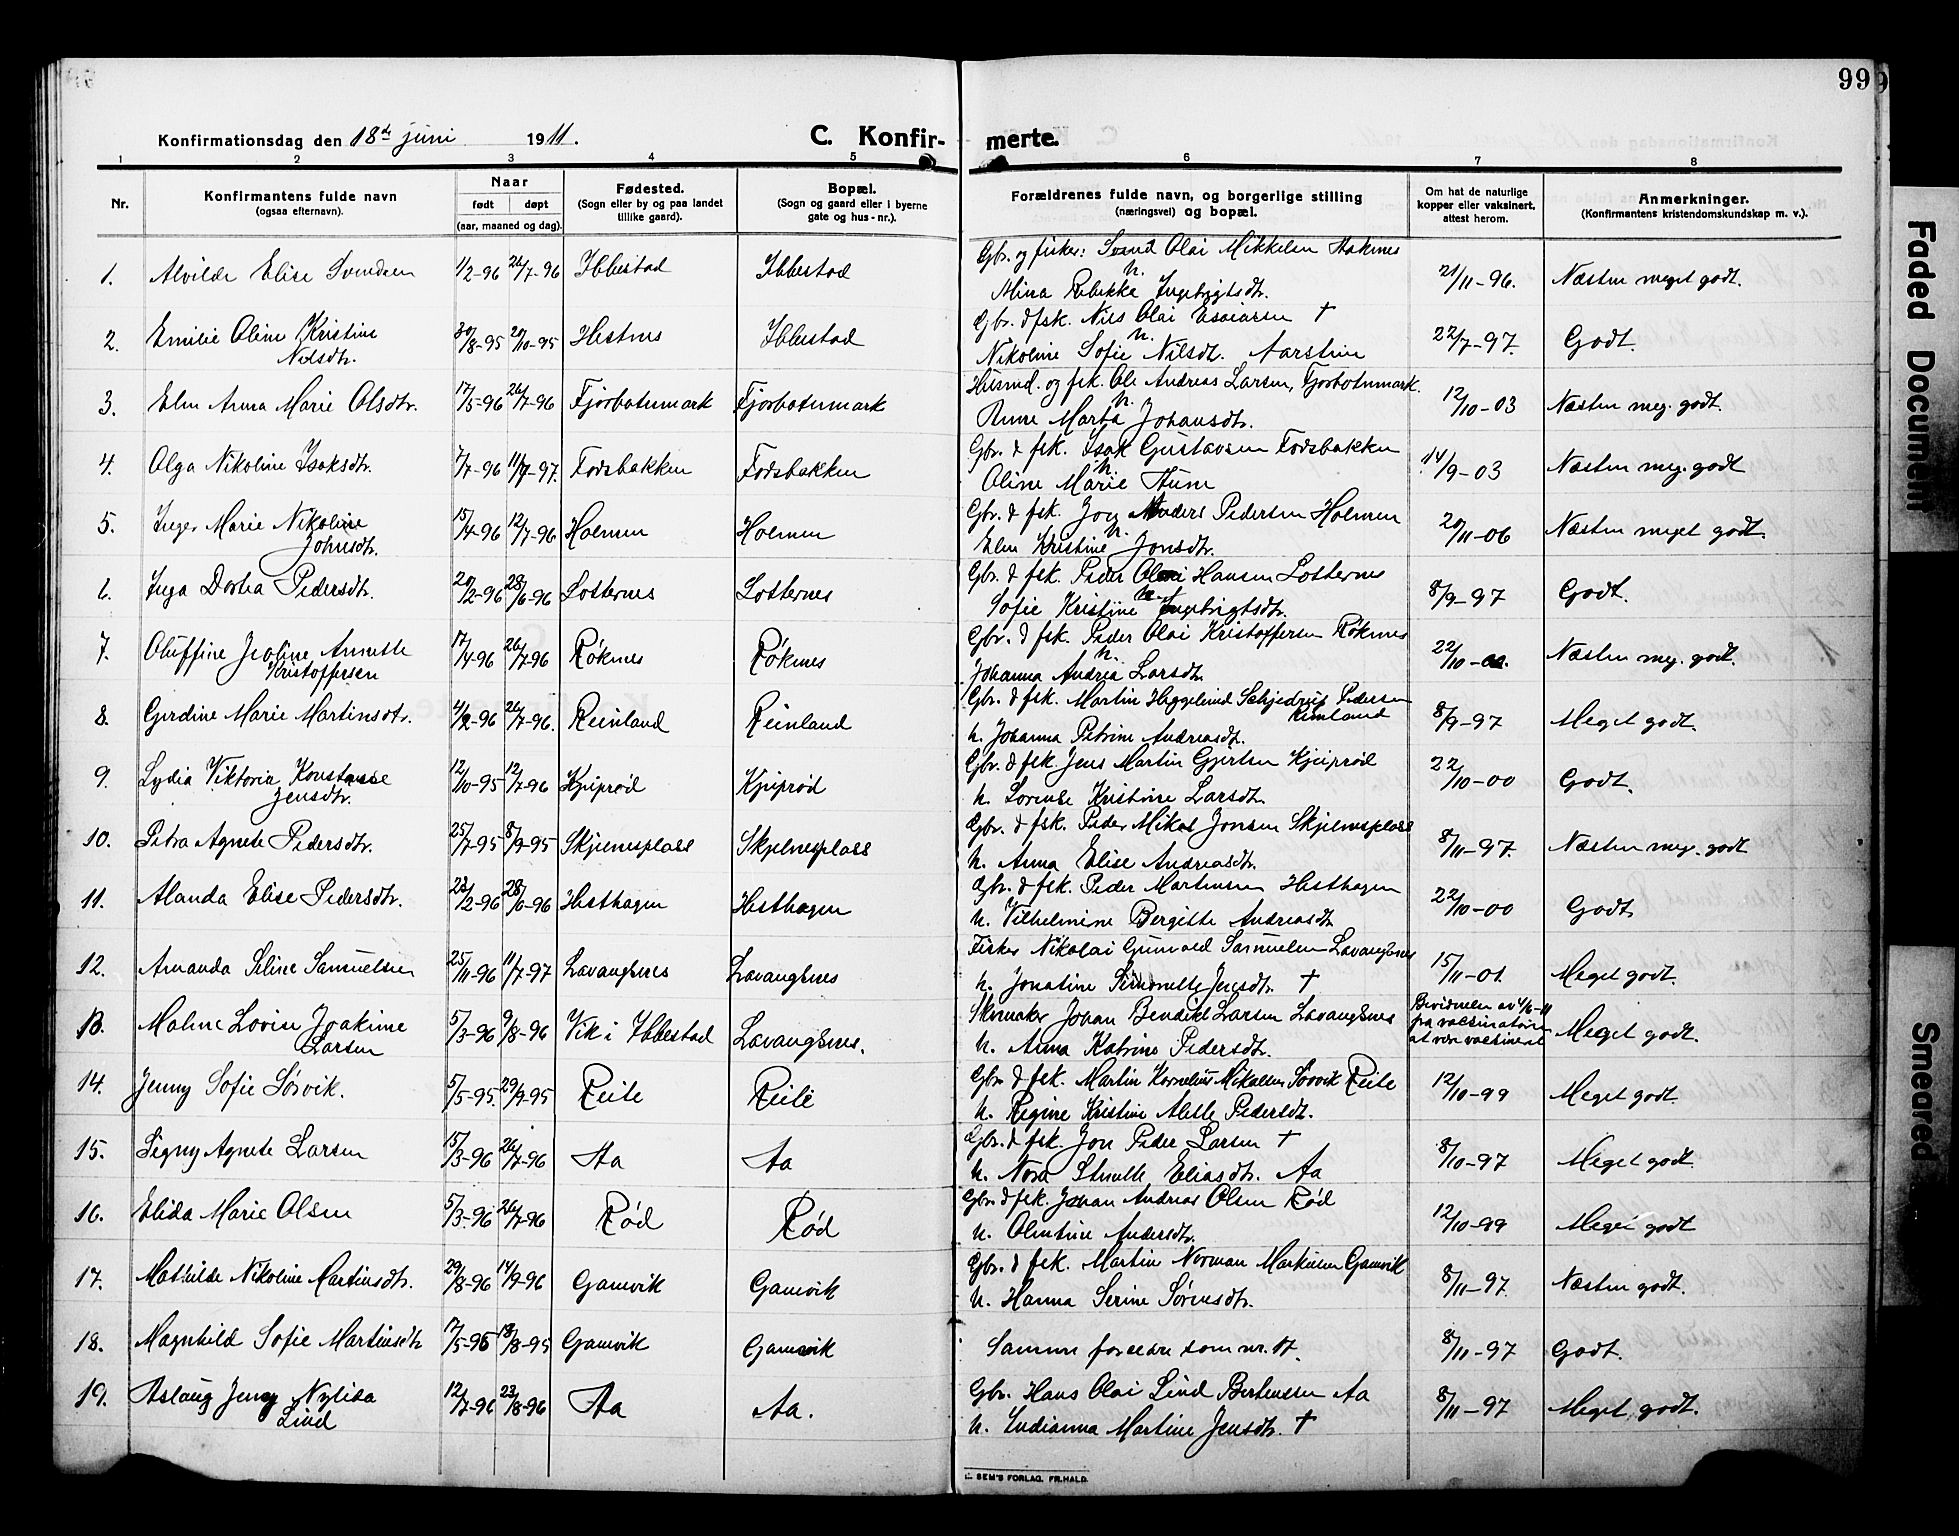 99
Konfirmationsdag den 18de juni 1911.
C. Konfirmerte.
1 2 3 4 5 6 7 8
Nr.
Konfirmantens fulde navn
(ogsaa efternavn).
Naar
født døpt
(aar, maaned og dag).
Fødested.
(Sogn eller by og paa landet
tillike gaard).
Bopæl.
(Sogn og gaard eller i byerne
gate og hus-nr.).
Forældrenes fulde navn, og borgerlige stilling
(næringsvei) og bopæl.
Om hat de naturlige
kopper eller vaksinert,
attest herom.
Anmerkninger.
(Konfirmantens kristendomskundskap m. v.).
Gbr. og fisker: Svend Olai Mikkelsen
1. Alvilde Elise Svendsen 1/2-96 26/7-96 Ibbestad Ibbestad n. 21/11-96. Næsten meget godt.
Mina Rebekka Ingebrigtsdtr.
Gbr. & fsk. Nils Olai Esaiassen †
2. Emilie Oline Kristine 30/8-95 20/10-95 Hestnes Ibbestad n. 22/7-97. Godt.
Nilsdtr. Nikoline Sofie Nilsdt. Aarstein
Husmd. og fsk. Ole Andreas Larsen, Fjordbotnmark.
3. Elen Anna Marie Olsdtr. 17/5-96 26/7-96 Fjordbotnmark Fjordbotnmark n. 12/10-03 Næsten meg. godt.
Anne Marta Johansdtr.
Gbr. & fsk. Isak Gustavsen Fossbakken
4. Olga Nikoline Isaksdtr. 7/7-96 11/7-97. Fossbakken Fossbakken n. 14/9-03 Næsten meg. godt
Oline Marie
Gbr. & fsk. Anders Pedersen Holmen
5. Inger Marie Nikoline 15/4-96 12/7-96 Holmen Holmen n. 20/11-06 Næsten meget godt.
Johnsdtr. Elen Kristine Jonsdtr.
Gbr. & fsk. Peder Olai Hansen Lotternes
6. Inga Dortea Pedersdtr. 20/2-96 28/6-96 Lotternes Lotternes n. 8/9-97 Godt.
Sofie Kristine Ingebrigtsdtr.
Gbr. & fsk. Peder Olai Kristoffersen Røknes
7. Oluffine Jeoline Annette 17/4-96 26/7-96 Røknes Røknes n. 22/10- Næsten meg. godt.
Kristoffersen Johanna Andrea Larsdtr.
Gbr. & fsk. Martin Heggelund Schjedrup Pedersen
Reinland
8. Gerdine Marie Martinsdtr. 4/2-96 26/7-96. Reinland Reinland 8/9-97 Meget godt.
n. Johanna Petrine Andreasdt.
Gbr. & fsk. Jens Martin Gjertsen Kjeiprød
9. Lydia Viktoria Konstanse 12/10-95 12/7-96 Kjeiprød Kjeiprød 22/10-00 Godt.
Jensdtr. n. Lorense Kristine Larsdtr.
Gbr. & fsk. Peder Mikal Jonsen Skjelnesplass
10. Petra Agnete Pedersdtr. 25/7-95 8/9-95 Skjelnesplass Skjelnesplass 8/11-97. Næsten meg. godt
n. Anna Elise Andreasdtr.
Gbr. & fsk. Peder Martinsen Hesthagen
11. Alanda Elise Pedersdtr. 23/2-96 28/6-96 Hesthagen Hesthagen 22/10-00 Godt
n. Vilhelmine Bergitte Andreasdt
Fisker Nikolai Grunvold Samuelsen Lavangsnes
12. Amanda Seline Samuelsen 25/11-96 11/7-97 Lavangsnes Lavangsnes 15/11-01. Meget godt.
n. Jonatine Simonette Jensdtr. †
Skomaker Johan Bendikt Larsen Lavangsnes
13. Malene Lovise Joakime 5/3-96 9/8-96 Vik i Ibbestad Lavangsnes. Bevidnelse av 4/6-11
fra vaccinatøren
at være vaccineret Meget godt.
Larsen n. Anna Katrine Pedersdtr.
Gbr. & fsk. Martin Kornelius Mikalsen Sørvik Reite
14. Jenny Sofie Sørvik. 5/5-95. 29/9-95 Reite Reite 12/10-99 Meget godt.
n. Regine Kristine Alette Pedersdt.
Gbr. & fsk. Jon Peder Larsen †
15. Signy Agnete Larsen 15/3-96 26/7-96 Aa Aa 8/10-97 Meget godt.
n. Nora Eliasdtr. Aa
Gbr. & fsk. Johan Andreas Olsen Rød
16. Elida Marie Olsen 5/3-96 26/7-96 Rød Rød 12/10-99 Meget godt
n. Olentine Andersdt.
Gbr. & fsk. Martin Norman Markusen Gamvik
17. Mathilde Nikoline Martinsdtr. 29/8-96 14/9-96 Gamvik Gamvik 8/11-97 Næsten godt.
n. Hanna Serine Sørensdtr.
18. Magnhild Sofie Martinsdtr 17/5-95 18/8-95 Gamvik Gamvik Samme forældre som nr. 17. 8/11-97 Godt.
Gbr. Hans Olai Lind Berntsen Aa
19. Aslaug Jenny Nylida 12/7-96 23/8-96 Aa Aa. 8/11-97 Meget godt.
Lind n. Indianna Martine Jensdtr. †
SEM'S FORLAG. FR.HALD.
Faded Document
Smeared